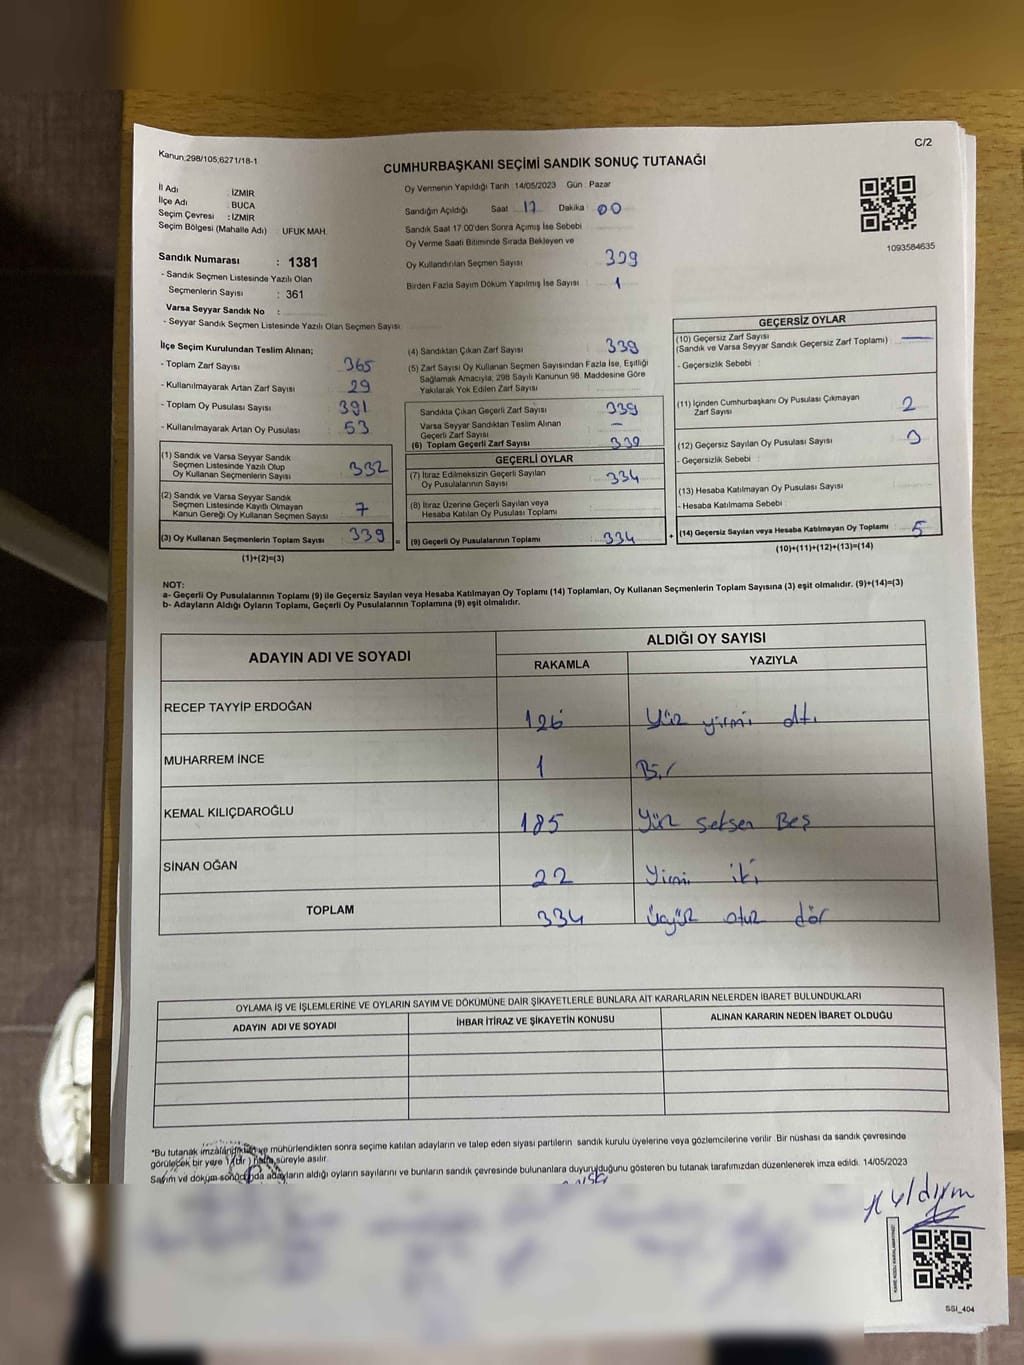 Kanun;298/105;6271/18-1
C/2
CUMHURBAŞKANI SEÇİMİ SANDIK SONUÇ TUTANAĞI
İl Adı : İZMİR
İlçe Adı : BUCA
Seçim Çevresi : İZMİR
Seçim Bölgesi (Mahalle Adı) : UFUK MAH.
Oy Vermenin Yapıldığı Tarih :14/05/2023 Gün : Pazar
Sandığın Açıldığı Saat 17 Dakika 00
Sandık Saat 17:00'den Sonra Açımış İse Sebebi
Oy Verme Saati Bitiminde Sırada Bekleyen ve
Oy Kullandırılan Seçmen Sayısı 339
Birden Fazla Sayım Döküm Yapılmış İse Sayısı 1
1093584635
Sandık Numarası : 1381
- Sandık Seçmen Listesinde Yazılı Olan
Seçmenlerin Sayısı : 361
Varsa Seyyar Sandık No :
- Seyyar Sandık Seçmen Listesinde Yazılı Olan Seçmen Sayısı:
İlçe Seçim Kurulundan Teslim Alınan;
- Toplam Zarf Sayısı 365
- Kullanılmayarak Artan Zarf Sayısı 29
- Toplam Oy Pusulası Sayısı 391
- Kullanılmayarak Artan Oy Pusulası 53
(1) Sandık ve Varsa Seyyar Sandık
Seçmen Listesinde Yazılı Olup
Oy Kullanan Seçmenlerin Sayısı 332
(2) Sandık ve Varsa Seyyar Sandık
Seçmen Listesinde Kayıtlı Olmayan
Kanun Gereği Oy Kullanan Seçmen Sayısı 7
(3) Oy Kullanan Seçmenlerin Toplam Sayısı 339 =
(1)+(2)=(3)
(4) Sandıktan Çıkan Zarf Sayısı 339
(5) Zarf Sayısı Oy Kullanan Seçmen Sayısından Fazla İse, Eşitliği
Sağlamak Amacıyla; 298 Sayılı Kanunun 98. Maddesine Göre
Yakılarak Yok Edilen Zarf Sayısı
Sandıkta Çıkan Geçerli Zarf Sayısı 339
Varsa Seyyar Sandıktan Teslim Alınan
Geçerli Zarf Sayısı –
(6) Toplam Geçerli Zarf Sayısı 339
GEÇERLİ OYLAR
(7) İtiraz Edilmeksizin Geçerli Sayılan
Oy Pusulalarının Sayısı 334
(8) İtiraz Üzerine Geçerli Sayılan veya
Hesaba Katılan Oy Pusulası Toplamı
(9) Geçerli Oy Pusulalarının Toplamı 334 +
GEÇERSİZ OYLAR
(10) Geçersiz Zarf Sayısı
(Sandık ve Varsa Seyyar Sandık Geçersiz Zarf Toplamı) —
- Geçersizlik Sebebi :
(11) İçinden Cumhurbaşkanı Oy Pusulası Çıkmayan
Zarf Sayısı 2
(12) Geçersiz Sayılan Oy Pusulası Sayısı
- Geçersizlik Sebebi :
(13) Hesaba Katılmayan Oy Pusulası Sayısı
- Hesaba Katılmama Sebebi
(14) Geçersiz Sayılan veya Hesaba Katılmayan Oy Toplamı 5
(10)+(11)+(12)+(13)=(14)
NOT:
a- Geçerli Oy Pusulalarının Toplamı (9) ile Geçersiz Sayılan veya Hesaba Katılmayan Oy Toplamı (14) Toplamları, Oy Kullanan Seçmenlerin Toplam Sayısına (3) eşit olmalıdır. (9)+(14)=(3)
b- Adayların Aldığı Oyların Toplamı, Geçerli Oy Pusulalarının Toplamına (9) eşit olmalıdır.
ADAYIN ADI VE SOYADI
ALDIĞI OY SAYISI
RAKAMLA YAZIYLA
RECEP TAYYİP ERDOĞAN 126 Yüz yirmi altı
MUHARREM İNCE 1 Bir
KEMAL KILIÇDAROĞLU 185 Yüz seksen Beş
SİNAN OĞAN 22 Yirmi iki
TOPLAM 334 Üçyüz otuz dör
OYLAMA İŞ VE İŞLEMLERİNE VE OYLARIN SAYIM VE DÖKÜMÜNE DAİR ŞİKAYETLERLE BUNLARA AİT KARARLARIN NELERDEN İBARET BULUNDUKLARI
ADAYIN ADI VE SOYADI İHBAR İTİRAZ VE ŞİKAYETİN KONUSU ALINAN KARARIN NEDEN İBARET OLDUĞU
*Bu tutanak imzalandıktan ve mühürlendikten sonra seçime katılan adayların ve talep eden siyasi partilerin sandık kurulu üyelerine veya gözlemcilerine verilir. Bir nüshası da sandık çevresinde
görülecek bir yere 1 (bir) hafta süreyle asılır.
Sayım ve döküm sonucunda adayların aldığı oyların sayılarını ve bunların sandık çevresinde bulunanlara duyurulduğunu gösteren bu tutanak tarafımızdan düzenlenerek imza edildi. 14/05/2023
SSI_404